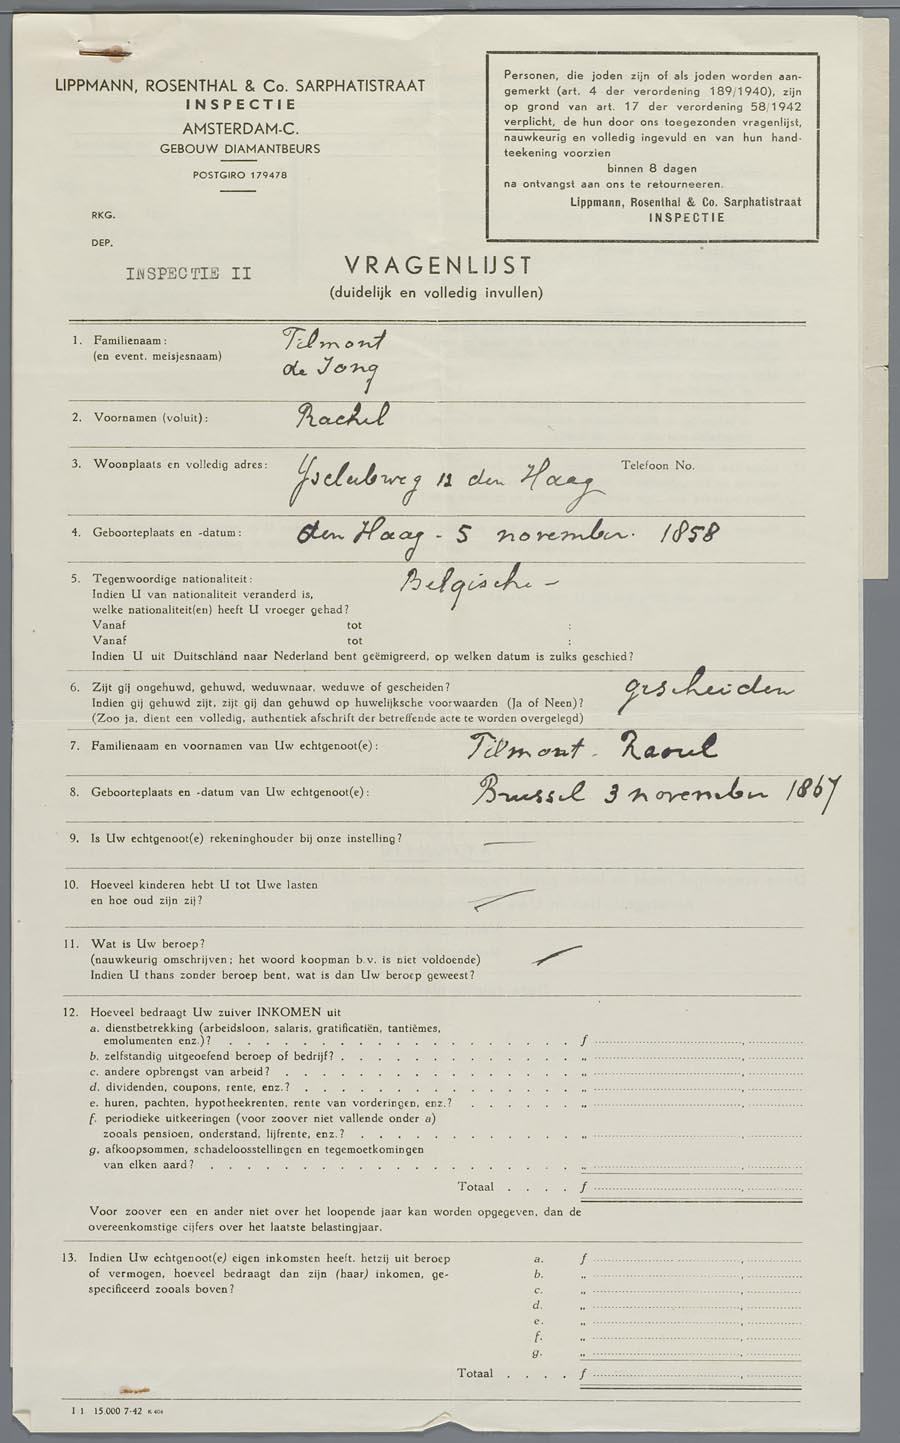 LIPPMANN, ROSENTHAL & Co. SARPHATISTRAAT
INSPECTIE
AMSTERDAM-C.
GEBOUW DIAMANTBEURS
POSTGIRO 179478
RKG.
DEP.
INSPECTIE II
Personen, die joden zijn of als joden worden aan-
gemerkt (art. 4 der verordening 189/1940), zijn
op grond van art. 17 der verordening 58/1942
verplicht, de hun door ons toegezonden vragenlijst,
nauwkeurig en volledig ingevuld en van hun hand-
teekening voorzien
binnen 8 dagen
na ontvangst aan ons te retourneeren.
Lippmann, Rosenthal & Co. Sarphatistraat
INSPECTIE
VRAGENLIJST
(duidelijk en volledig invullen)
1. Familienaam: Tilmont
(en event. meisjesnaam) de Jong
2. Voornamen (voluit): Rachel
3. Woonplaats en volledig adres: 12 den Haag Telefoon No.
4. Geboorteplaats en -datum: den Haag - 5 november. 1858
5. Tegenwoordige nationaliteit: Belgische -
Indien U van nationaliteit veranderd is,
welke nationaliteit(en) heeft U vroeger gehad?
Vanaf tot :
Vanaf tot :
Indien U uit Duitschland naar Nederland bent geëmigreerd, op welken datum is zulks geschied?
6. Zijt gij ongehuwd, gehuwd, weduwnaar, weduwe of gescheiden? gescheiden
Indien gij gehuwd zijt, zijt gij dan gehuwd op huwelijksche voorwaarden (Ja of Neen)?
(Zoo ja, dient een volledig, authentiek afschrift der betreffende acte te worden overgelegd)
7. Familienaam en voornamen van Uw echtgenoot(e): Tilmont - Raoul
8. Geboorteplaats en -datum van Uw echtgenoot(e): Brussel 3 november 1867
9. Is Uw echtgenoot(e) rekeninghouder bij onze instelling? —
10. Hoeveel kinderen hebt U tot Uwe lasten
en hoe oud zijn zij?
11. Wat is Uw beroep?
(nauwkeurig omschrijven; het woord koopman b.v. is niet voldoende)
Indien U thans zonder beroep bent, wat is dan Uw beroep geweest?
12. Hoeveel bedraagt Uw zuiver INKOMEN uit
a. dienstbetrekking (arbeidsloon, salaris, gratificatiën, tantièmes,
emolumenten enz.)? f
b. zelfstandig uitgeoefend beroep of bedrijf? „
c. andere opbrengst van arbeid? „
d. dividenden, coupons, rente, enz.? „
e. huren, pachten, hypotheekrenten, rente van vorderingen, enz.? „
f. periodieke uitkeeringen (voor zoover niet vallende onder a)
zooals pensioen, onderstand, lijfrente, enz.? „
g. afkoopsommen, schadeloosstellingen en tegemoetkomingen
van elken aard? „
Totaal . . . . f
Voor zoover een en ander niet over het loopende jaar kan worden opgegeven, dan de
overeenkomstige cijfers over het laatste belastingjaar.
13. Indien Uw echtgenoot(e) eigen inkomsten heeft, hetzij uit beroep a. f
of vermogen, hoeveel bedraagt dan zijn (haar) inkomen, ge- b. „
specificeerd zooals boven? c. „
d. „
e. „
f. „
g. „
Totaal . . . . f
I 1 15.000 7-42 K 404